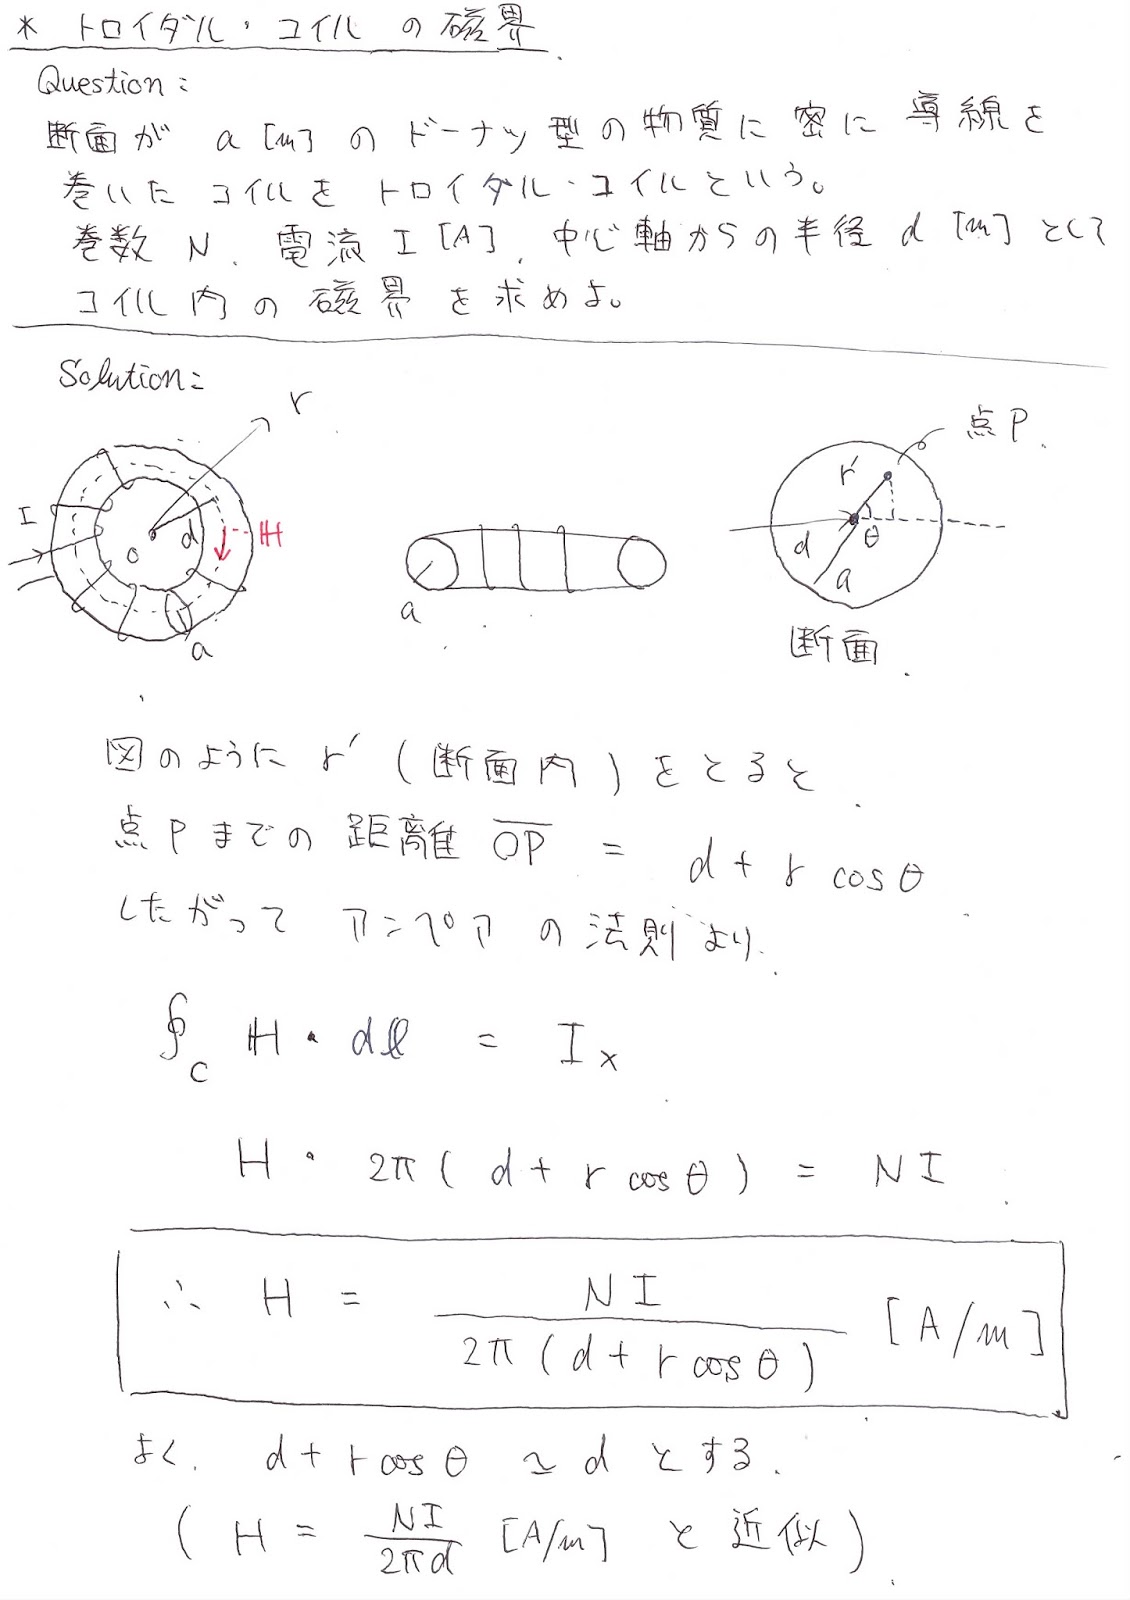 * トロイダル・コイル の 磁界
Question:
断面が a [m] の ドーナツ型の物質に 密に 導線を
巻いた コイルを トロイダル・コイルという。
巻数 N、電流 I [A]、中心軸からの半径 d [m] として
コイル内の 磁界 を求めよ。
Solution:
r
I
o
d
H
a
a
点P.
r'
d
θ
a
断面
図のように r' (断面内) をとると
点Pまでの 距離 OP = d + r cosθ
したがって アンペア の 法則より
∮c H・dℓ = Ix
H・2π(d + r cosθ) = NI
∴ H = NI / 2π(d + r cosθ) [A/m]
よく、d + r cosθ ≃ d とする.
(H = NI / 2πd [A/m] と 近似)